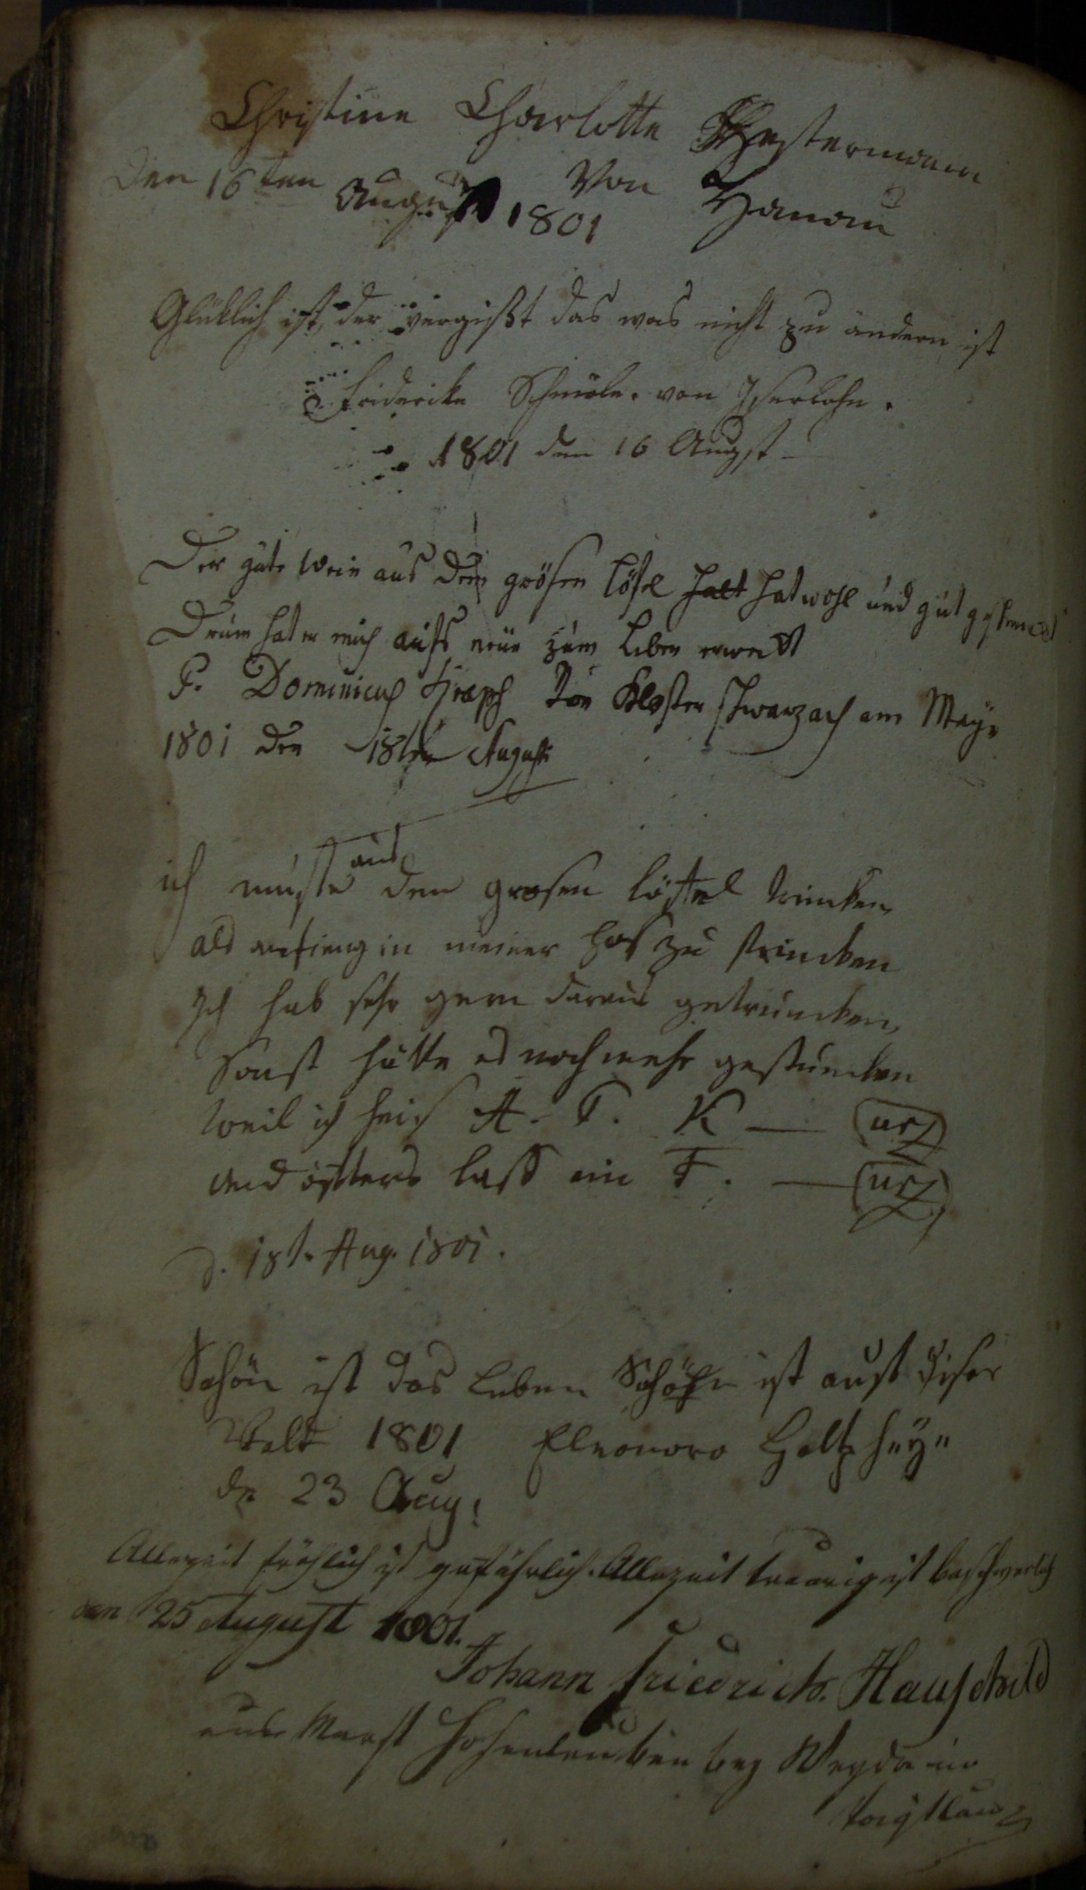 Christine Charlotte Westermann
Den 16ten August 1801 Von Hanau
Glüklich ist, der vergißt das was nicht zu ändern ist
Friderike Schmöle. von Iserlohn.
1801 den 16 Augst
Der gute Wein aus dem grosen löfel hat wohl und gut geschmeckt
Drum hat er mich aufs neue zum Leben erwekt
P. Dominicus Von Kloster schwarzach am Mayn
1801 den 18ten August
ich muste aus den grosen löffel trincken
als anfieng in meiner zu stincken
Ich hab sehr gern daraus getruncken,
Sonst hätte es noch mehr gestuncken
Weil ich heis A. T. K — urz
und öffters lass ein F. — urz
d. 18t. Aug. 1801.
Schön ist das Leben Schön ist auf diser
Welt 1801 Eleonora Holtzhey
de 23 Aug:
Allezeit fröhlich ist gefährlich. Allezeit traurig ist beschwerlich
den 25 August 1801.
Johann Friedrich. Hauschild
aus Markt Hohenleuben bey Weyda im
Voigtland